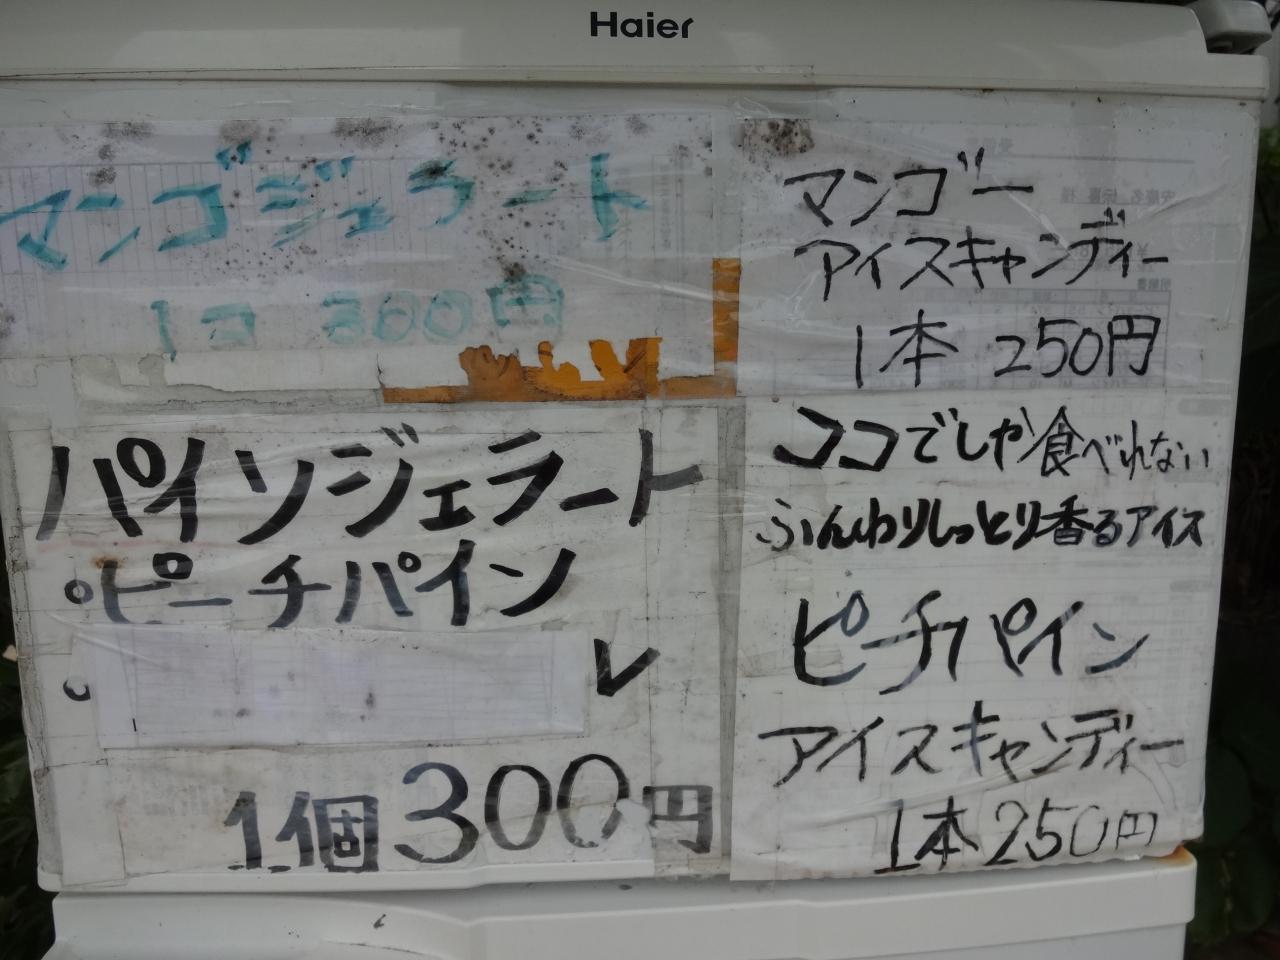 Haier
マンゴジェラート
1コ 300円
マンゴー
アイスキャンディー
1本 250円
パインジェラート
・ピーチパイン
レ
1個300円
ココでしか食べれない
ふんわりしっとり香るアイス
ピーチパイン
アイスキャンディー
1本250円